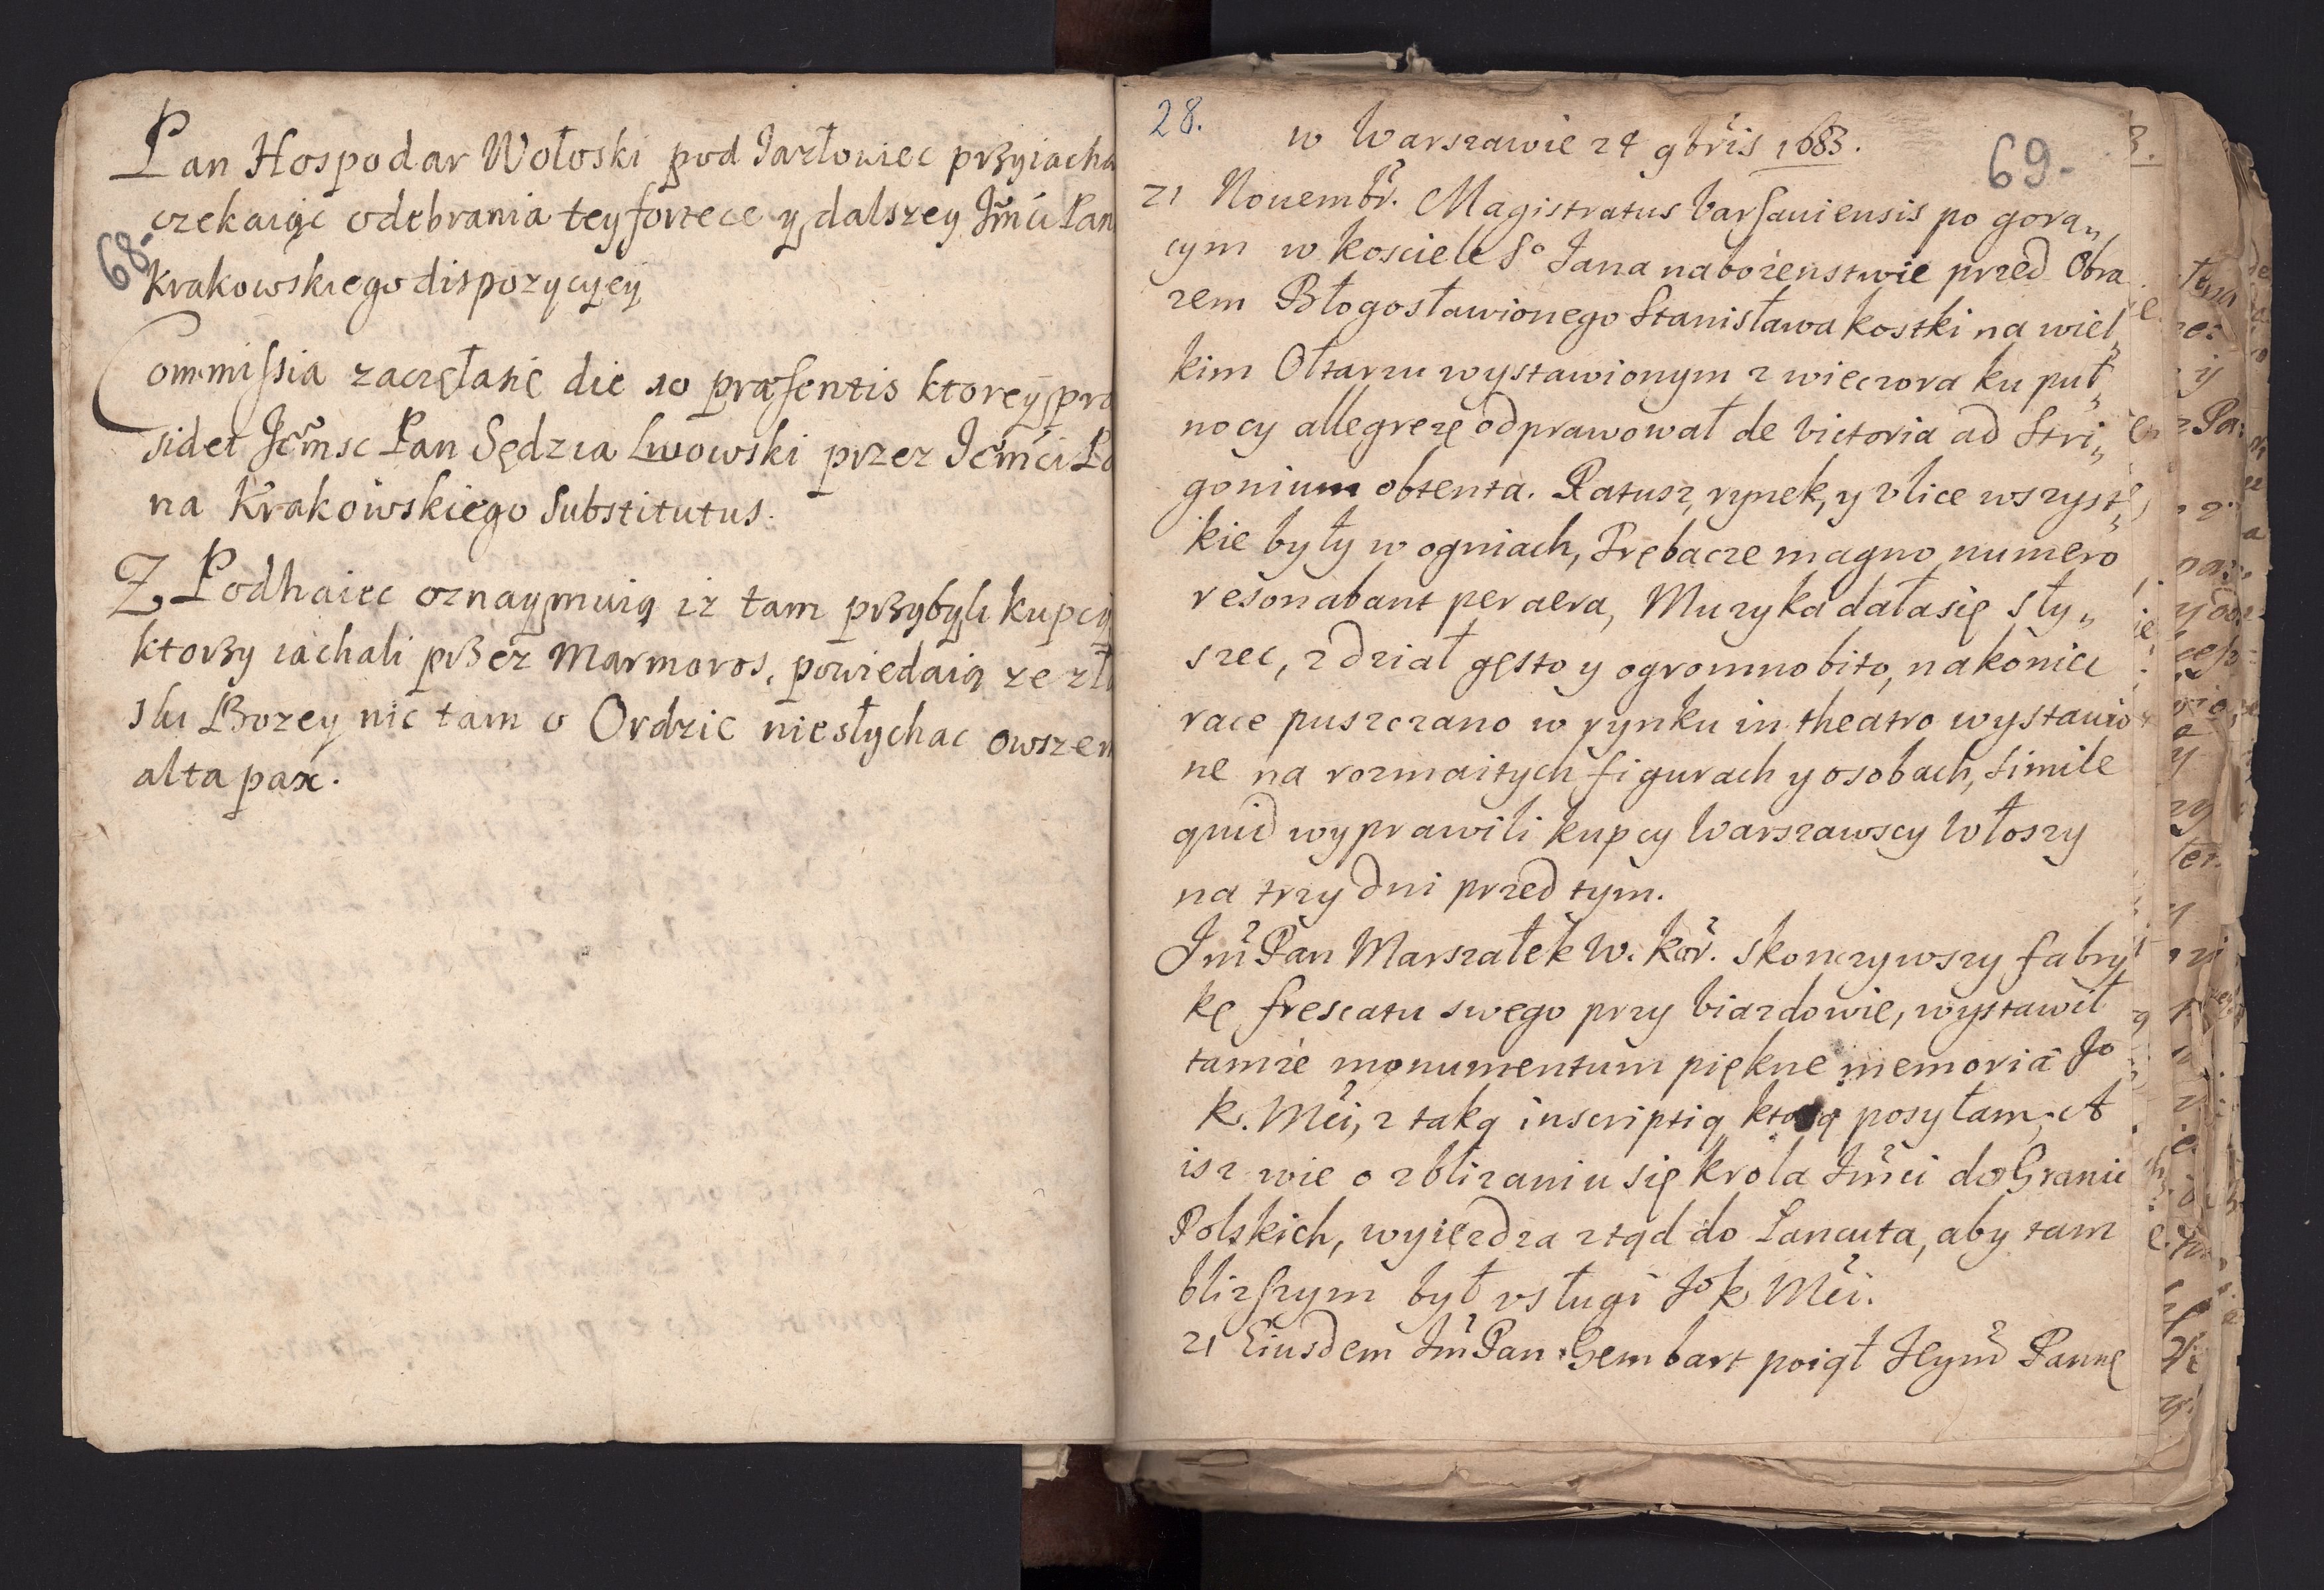 68.
Pan Hospodar Wołoski pod Jazłowiec przyiacha
czekaiąc odebrania tey fortece y dalszey Jmći Pan
Krakowskiego dispozycyey
Commissia zaczęłasię die 10 præsentis ktorey præ
sidet Jeṁsc Pan Sędzia Lwowski przez Jeṁći Pa
na Krakowskiego Substitutus.
Z Podhaiec oznaymuią iz tam przybyli kupcy
ktorzy iachali przez Marmoros, powiedaią ze z
sku Bozey nic tam o Ordzie niesłychac owszem
alta pax.
28.
69.
w Warszawie 24 9bris 1683.
21 Nouembr. Magistratus Varsauiensis po gorą„
cym w kosciele So Jana nabożenstwie przed Obra
zem Błogosławionego Stanisława Kostki na wiel„
kim Ołtarzu wystawionym z wieczora ku puł„
nocy allegrezę odprawował de victoria ad Stri„
gonium obtenta. Ratusz, rynek, y vlice wszyst„
kie były w ogniach, Trębacze magno numero
resonabant per aera, Muzyka dałasię sły„
szec, z dział gęsto y ogromno bito, na koniec
race puszczano w rynku in theatro wystawio
ne na rozmaitych figurach y osobach, simile
quid wyprawili kupcy Warszawscy Włoszy
na trzy dni przed tym.
Jm Pan Marszałek W. Kor. skonczywszy fabry
kę frescatu swego przy Viazdowie, wystawił
tamże monumentum piękne memoria Jo
K. Mći, z taką inscriptią ktorą posyłam, A
isz wie o zblizaniu się Krola Jmći do Granic
Polskich, wyiezdza ztąd do Lancuta, aby tam
blizszym był vsługi Jo K Mći.
21 Eiusdem Jm Pan Gembart poiął Jeym Pannę